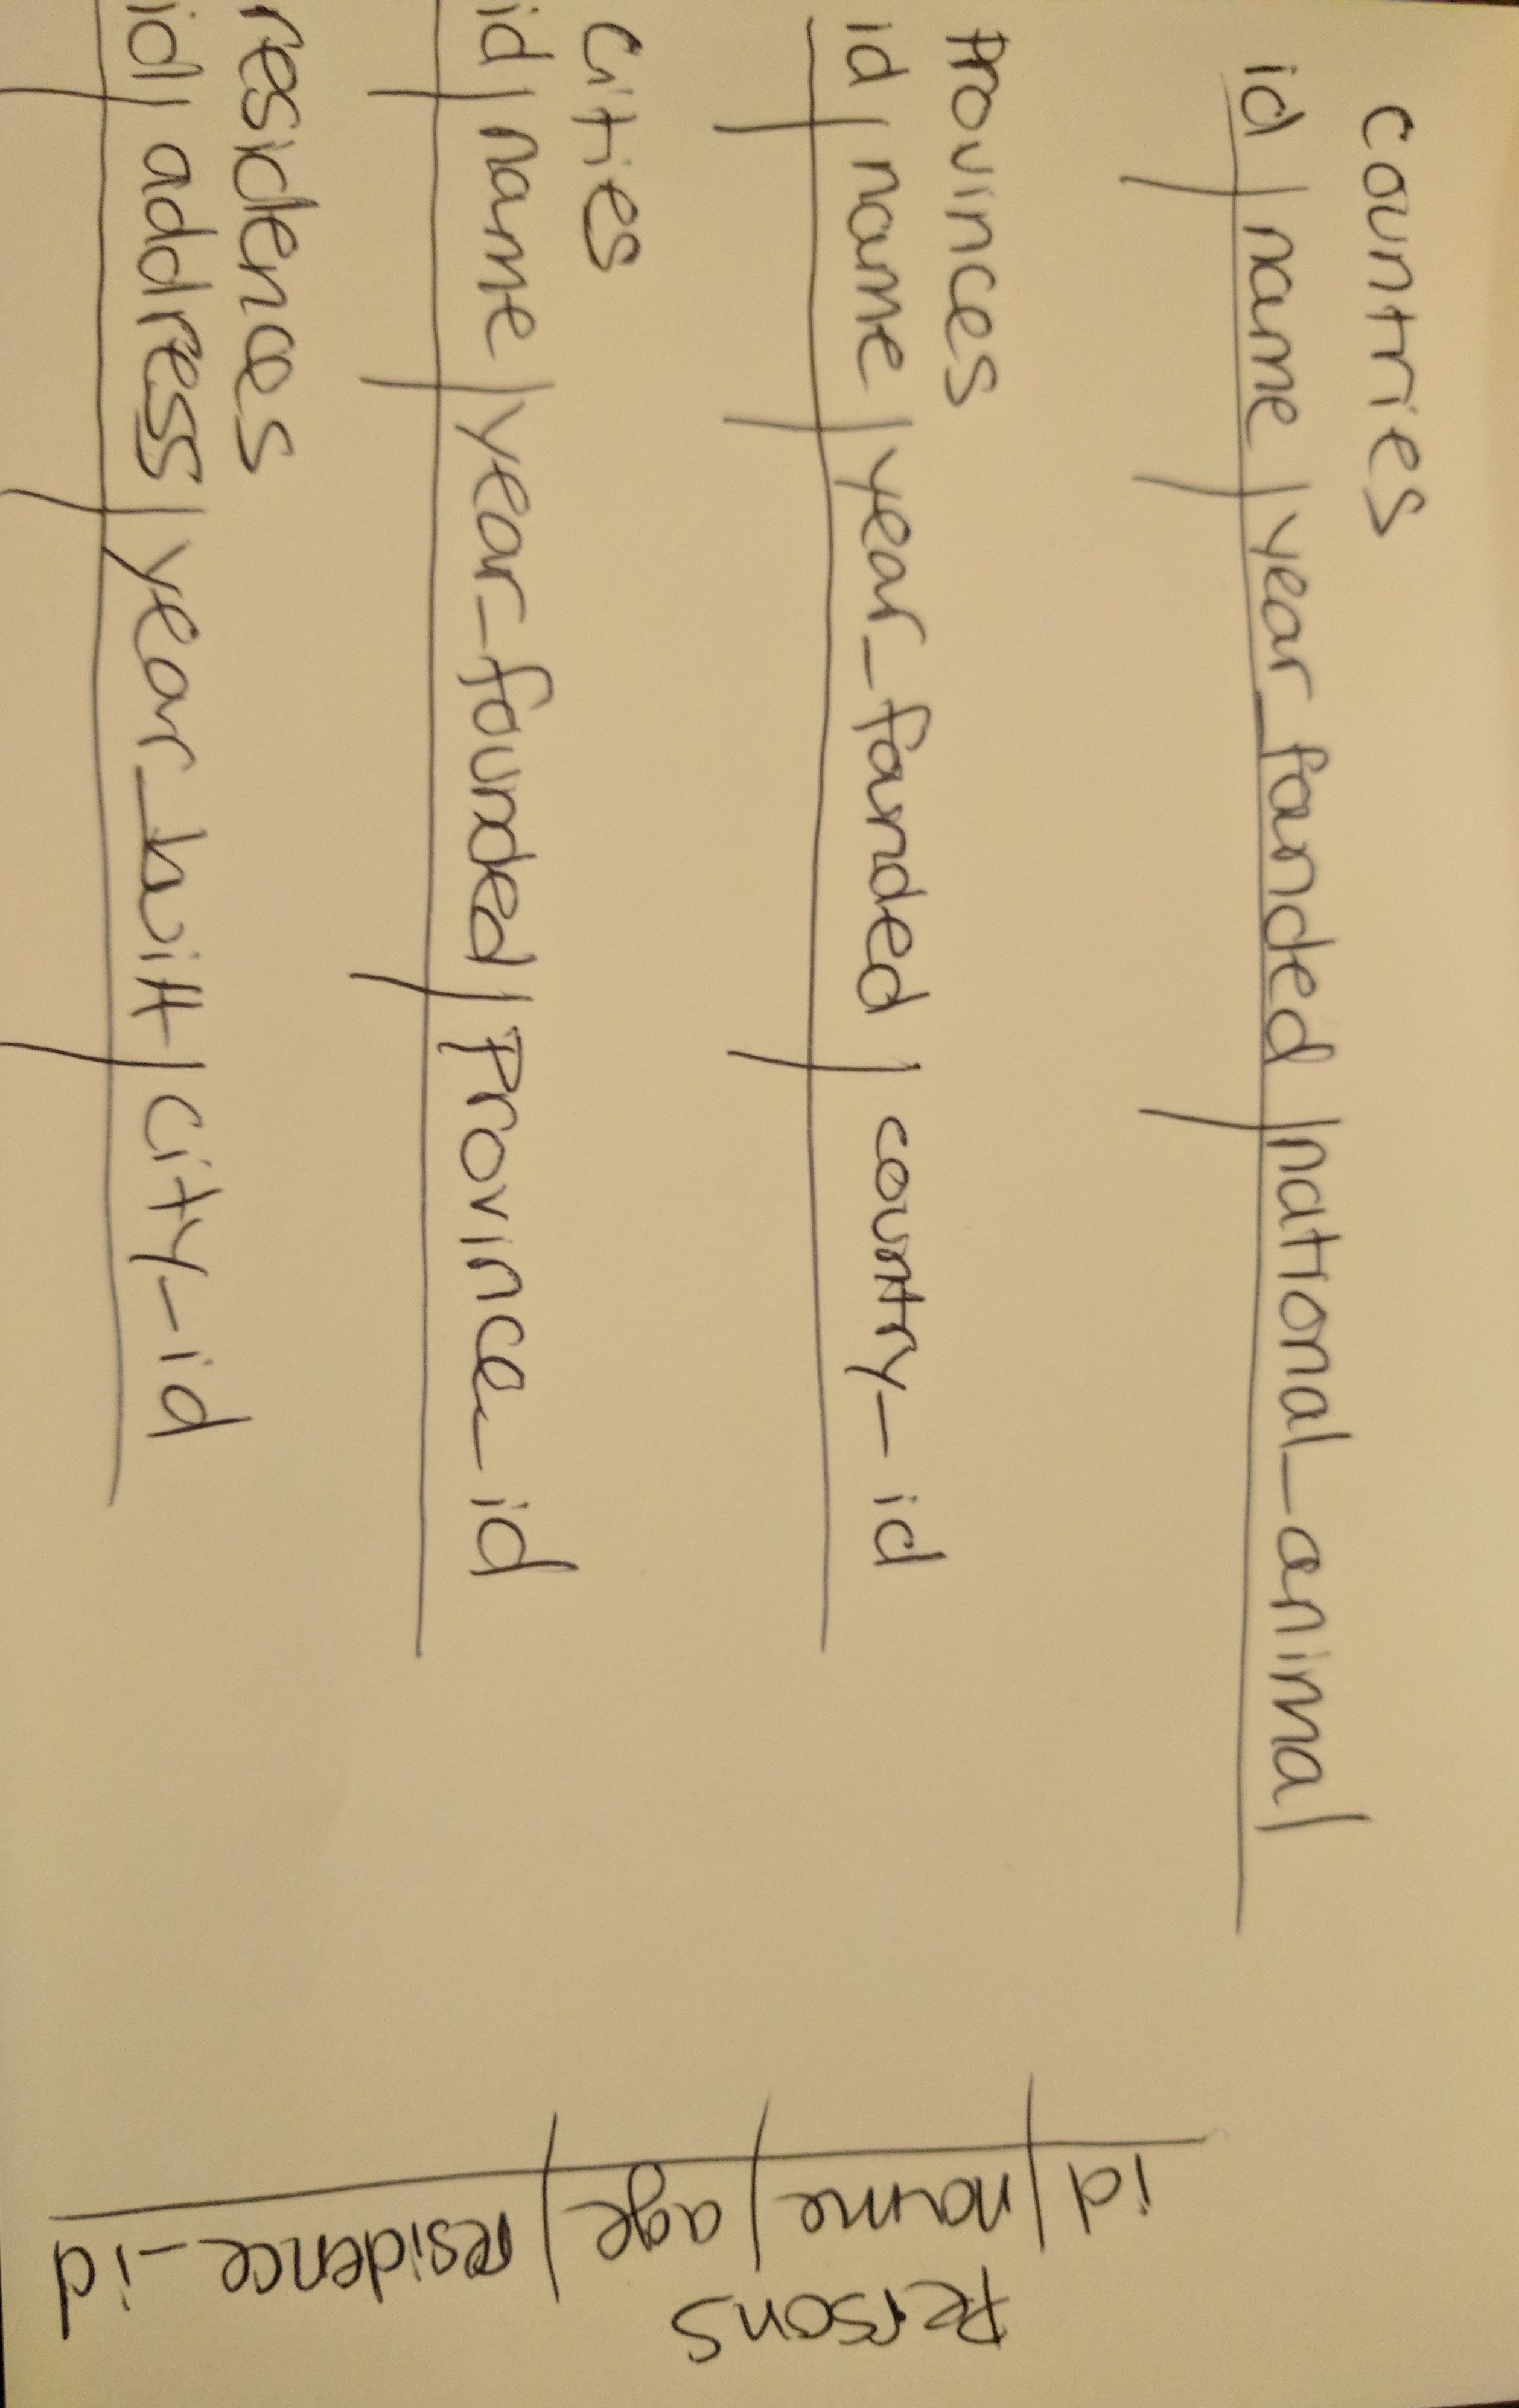 Countries
id | name | year_founded | national_animal
Provinces
id | name | year_founded | country_id
Cities
id | name | year_founded | Province_id
residences
id | address | year_built | city_id
Persons
id | name | age | residence_id